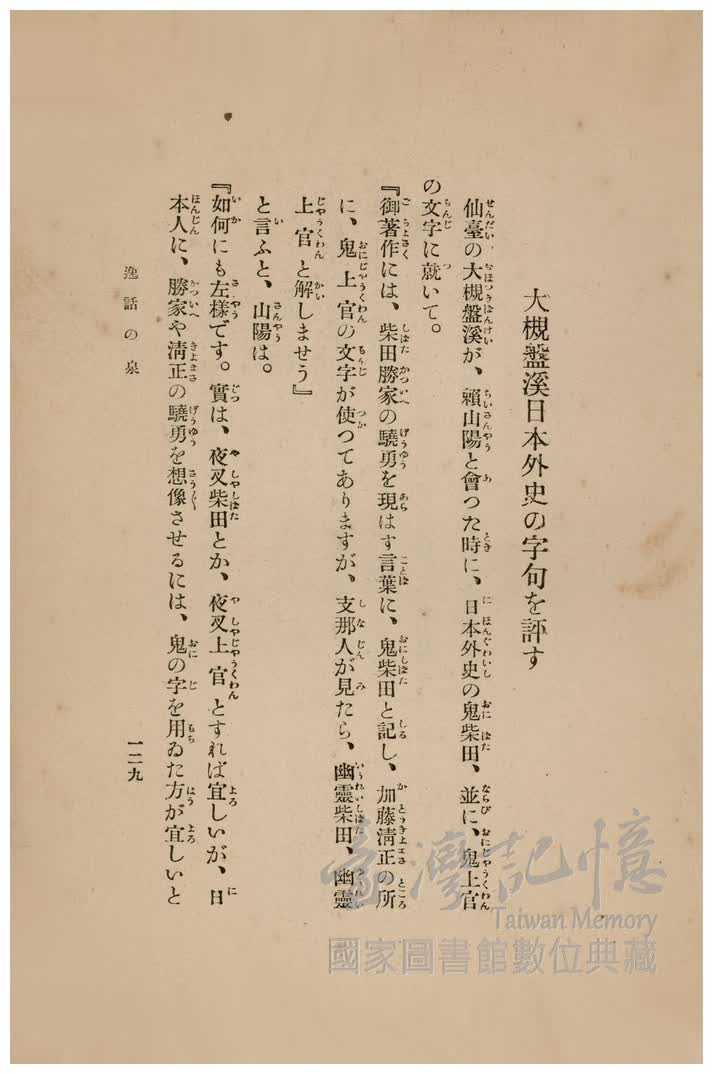 大槻盤溪日本外史の字句を評す
仙臺の大槻盤溪が、賴山陽と會つた時に、日本外史の鬼柴田、並に、鬼上官
の文字に就いて。
『御著作には、柴田勝家の驍勇を現はす言葉に、鬼柴田と記し、加藤淸正の所
に、鬼上官の文字が使つてありますが、支那人が見たら、幽靈柴田、幽靈
上官と解しませう』
と言ふと、山陽は。
『如何にも左樣です。實は、夜叉柴田とか、夜叉上官とすれば宜しいが、日
本人に、勝家や淸正の驍勇を想像させるには、鬼の字を用ゐた方が宜しいと
逸話の泉
一二九
臺灣記憶
Taiwan Memory
國家圖書館數位典藏